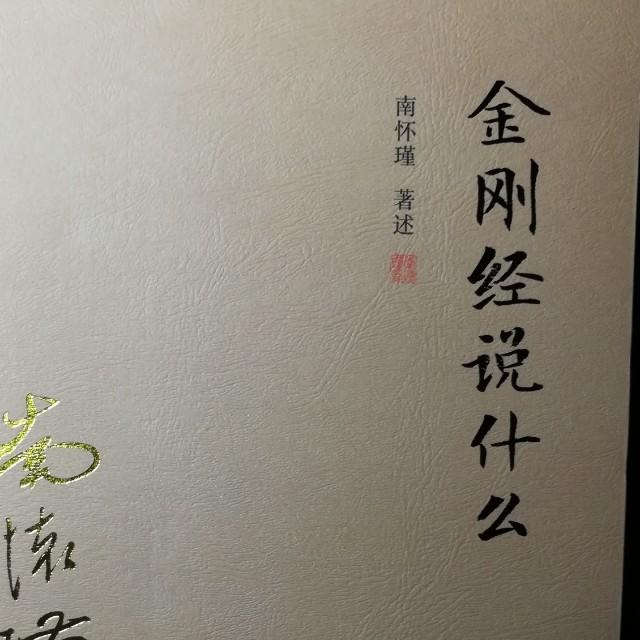 金刚经说什么
南怀瑾 著述
南怀瑾